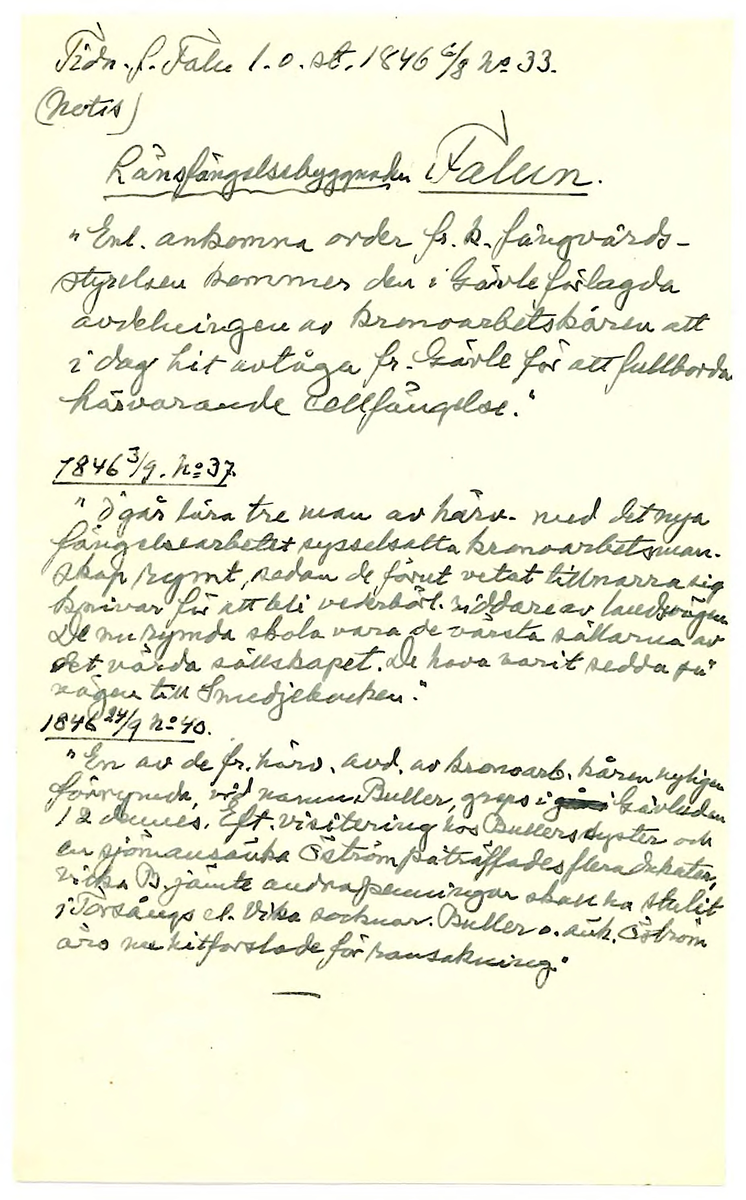 Tidn. f. Falu l. o. st. 1846 6/8 No 33.
(Notis)
Länsfängelsebyggnaden Falun.
"Enl. ankomna order fr. k. fångvårds-
styrelsen kommer den i Gävle förlagda
avdelningen av kronoarbetskåren att
i dag hit avtåga fr. Gävle för att fullborda
härvarande cellfängelse."
1846 3/9. No 37.
"I går lära tre man av härv. med det nya
fängelsearbetet sysselsatta kronoarbetsman-
skap rymt, sedan de förut vetat tillnarra sig
knivar för att bli vederbörl. riddare av landsvägen
De nu rymda skola vara de värsta sällarna av
det värda sällskapet. De hava varit sedda på
vägen till Smedjebacken."
1846 24/9 No 40.
"En av de fr. härv. avd. av kronoarb. kåren nyligen
förrymda, vid namn Buller, greps i Gävle den
12 dennes. Eft. visitering hos Bullers syster och
en sjömansänka Öström påträffades flera dukater,
vilka B. jämte andra penningar skall ha stulit
i Torsångs el. Vika socknar. Buller o. änk. Öström
äro nu hitforslade för ransakning."